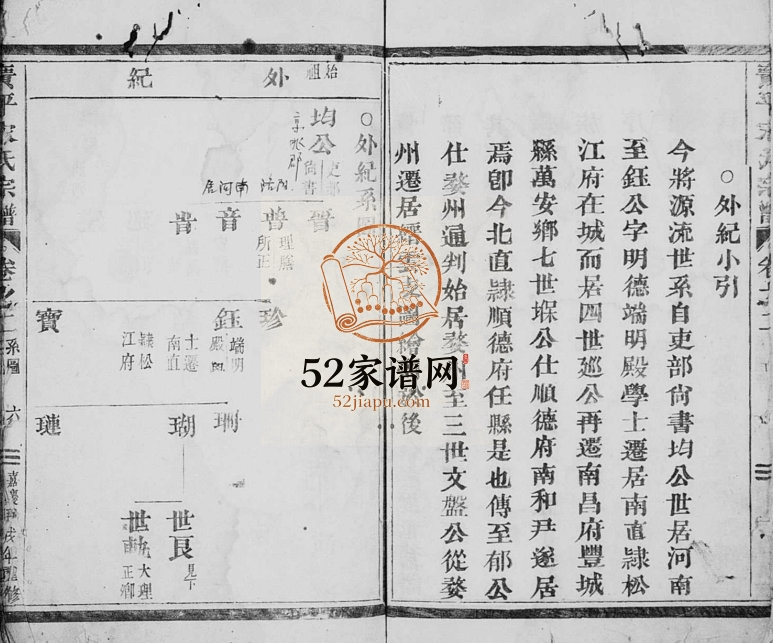 ○外紀小引
今將源流世系自吏部尙書均公世居河南
至鈺公字明德端明殿學士遷居南直隷松
江府在城而居四世廵公再遷南昌府豐城
縣萬安鄉七世堢公仕順德府南和尹遂居
焉卽今北直隷順德府任縣是也傳至郁公
仕婺州通判始居婺州至三世文盤公從婺
州遷居縉雲後
○外紀系圖
始祖
外
紀
均公吏部尙書
京兆郡
晉
河南
普理所正
音
昔
珍
鈺端明殿
學士遷南直隷松江府
寶
珊
瑚
璉
世良見下
大理正卿
宋氏宗譜
卷之二
系圖
六
嘉慶甲戌年重修
52家谱网
52jiapu.com